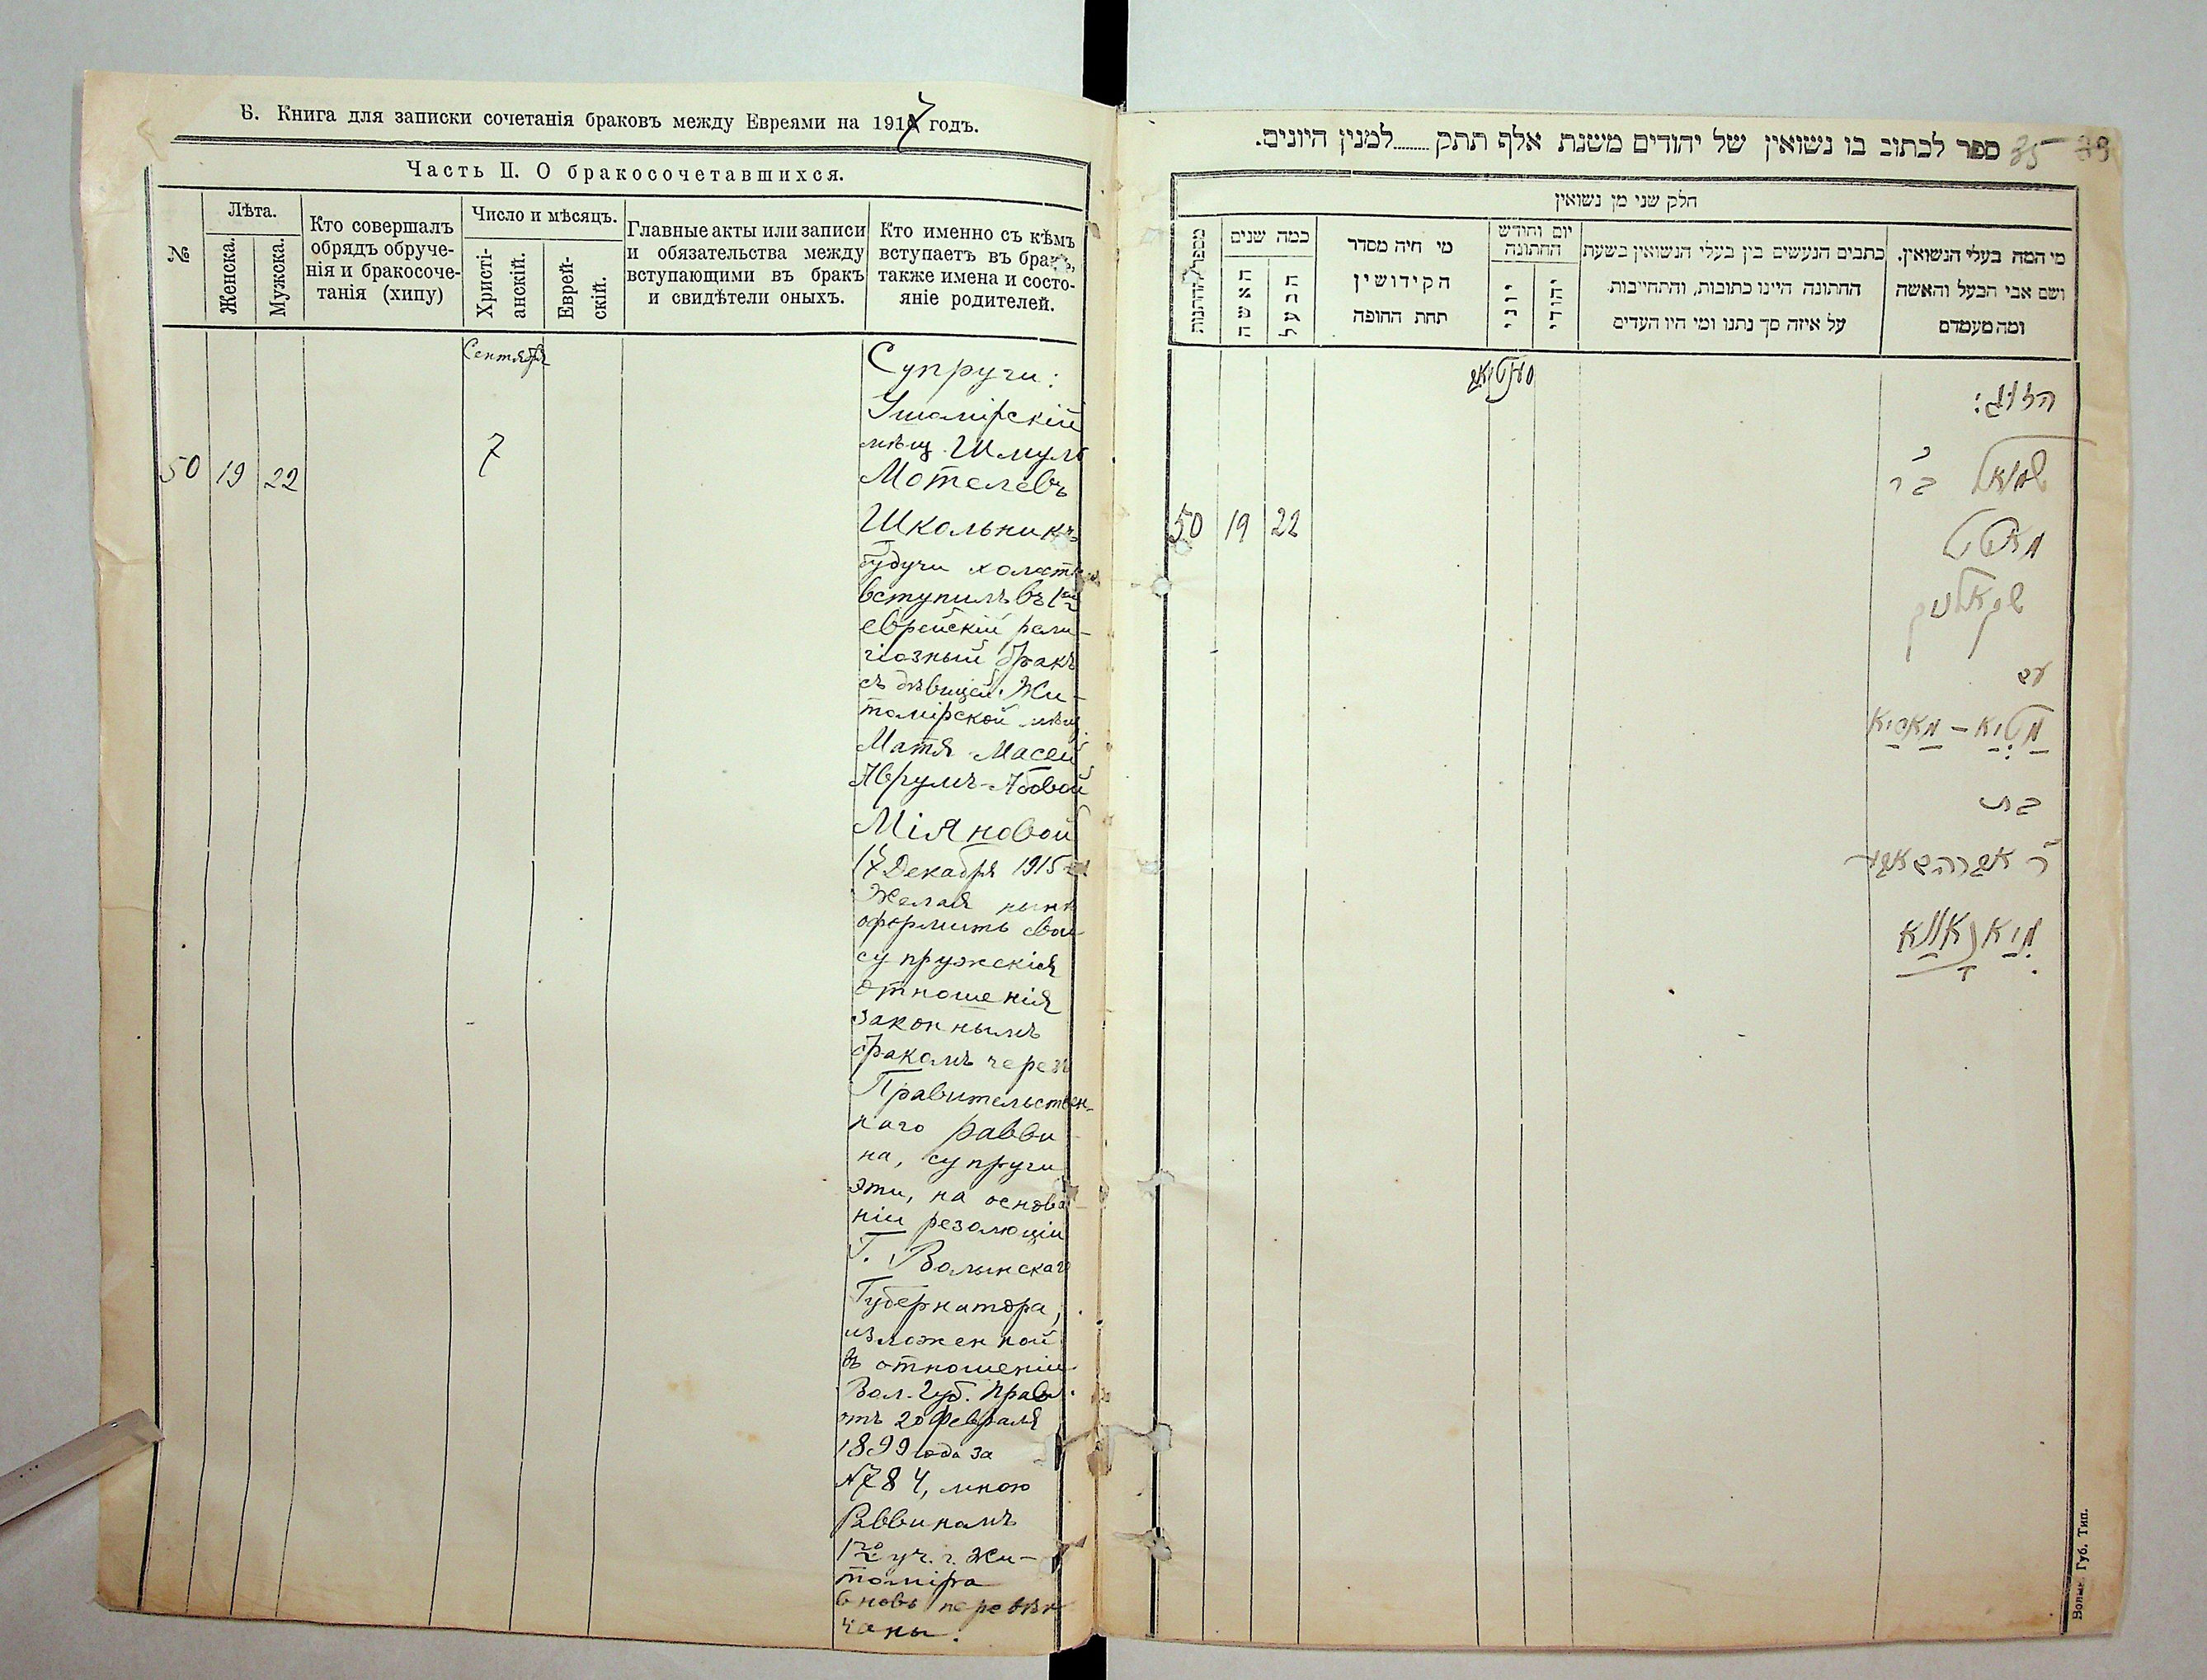 Б. Книга для записки сочетанія браковъ между Евреями на 1917 годъ.
Часть II. О бракосочетавшихся.
№
Лѣта.
Женска.
Мужска.
Кто совершалъ
обрядъ обруче-
нія и бракосоче-
танія (хипу)
Число и мѣсяцъ.
Христі-
анскій.
Еврей-
скій.
Главные акты или записи
и обязательства между
вступающими въ бракъ
и свидѣтели оныхъ.
Кто именно съ кѣмъ
вступаетъ въ бракъ,
также имена и состо-
яніе родителей.
Сентября
50 19 22 7
Супруги:
Ушомірскій
мѣщ. Шмуль
Мотелевъ
Школьникъ
будучи холость
вступилъ въ 1ый
еврейскій рели-
гіозный бракъ
съ дѣвицей Жи-
томірской мѣщ.
Матя-Масей
Аврумъ-Абовой
Міяновой
17 Декабря 1915
Желая нынѣ
оформить свои
супружескія
отношенія
законнымъ
бракомъ черезъ
Правительствен-
наго равви-
на, супруги
эти, на основа-
ніи резолюціи
Г. Волынскаго
Губернатора,
изложенной
въ отношеніи
Вол. Губ. Прав.
отъ 20 Февраля
1899 года за
№784, мною
Раввиномъ
1го уч. г. Жи-
томіра
вновь перевѣн-
чаны.
ספר לכתוב בו נשואין של יהודים משנת אלף תתק........למנין היונים.
35 33
חלק שני מן נשואין
מספר החתונות
כמה שנים
האשה
הבעל
מי היה מסדר
הקידושין
תחת החופה
יום וחודש
החתונה
יוני
יהודי
כתבים הנעשים בין בעלי הנשואין בשעת
החתונה היינו כתובות, והתחייבות
על איזה סך נתנו ומי היו העדים
מי המה בעלי הנשואין.
ושם אבי הבעל והאשה
ומה מעמדם
הזוג:
שמואל ב״ר
מאטיל
שקאלניק
עם
מטיא-מאסיא
בת
ר׳ אברהם אבא
מיאנאווא
50 19 22
Волын. Губ. Тип.